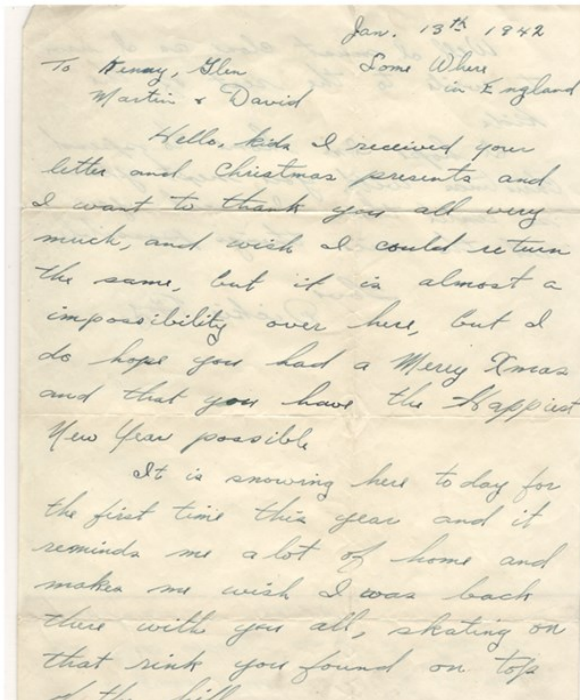 Jan. 13th 1942
To Kenny, Glen Some Where
Martin & David in England
Hello, kids I received your
letter and Christmas presents and
I want to thank you all very
much, and wish I could return
the same, but it is almost a
impossibility over here, but I
do hope you had a Merry Xmas
and that you have the Happiest
New Year possible
It is snowing here today for
the first time this year and it
reminds me a lot of home and
makes me wish I was back
there with you all, skating on
that rink you found on top
of the hill